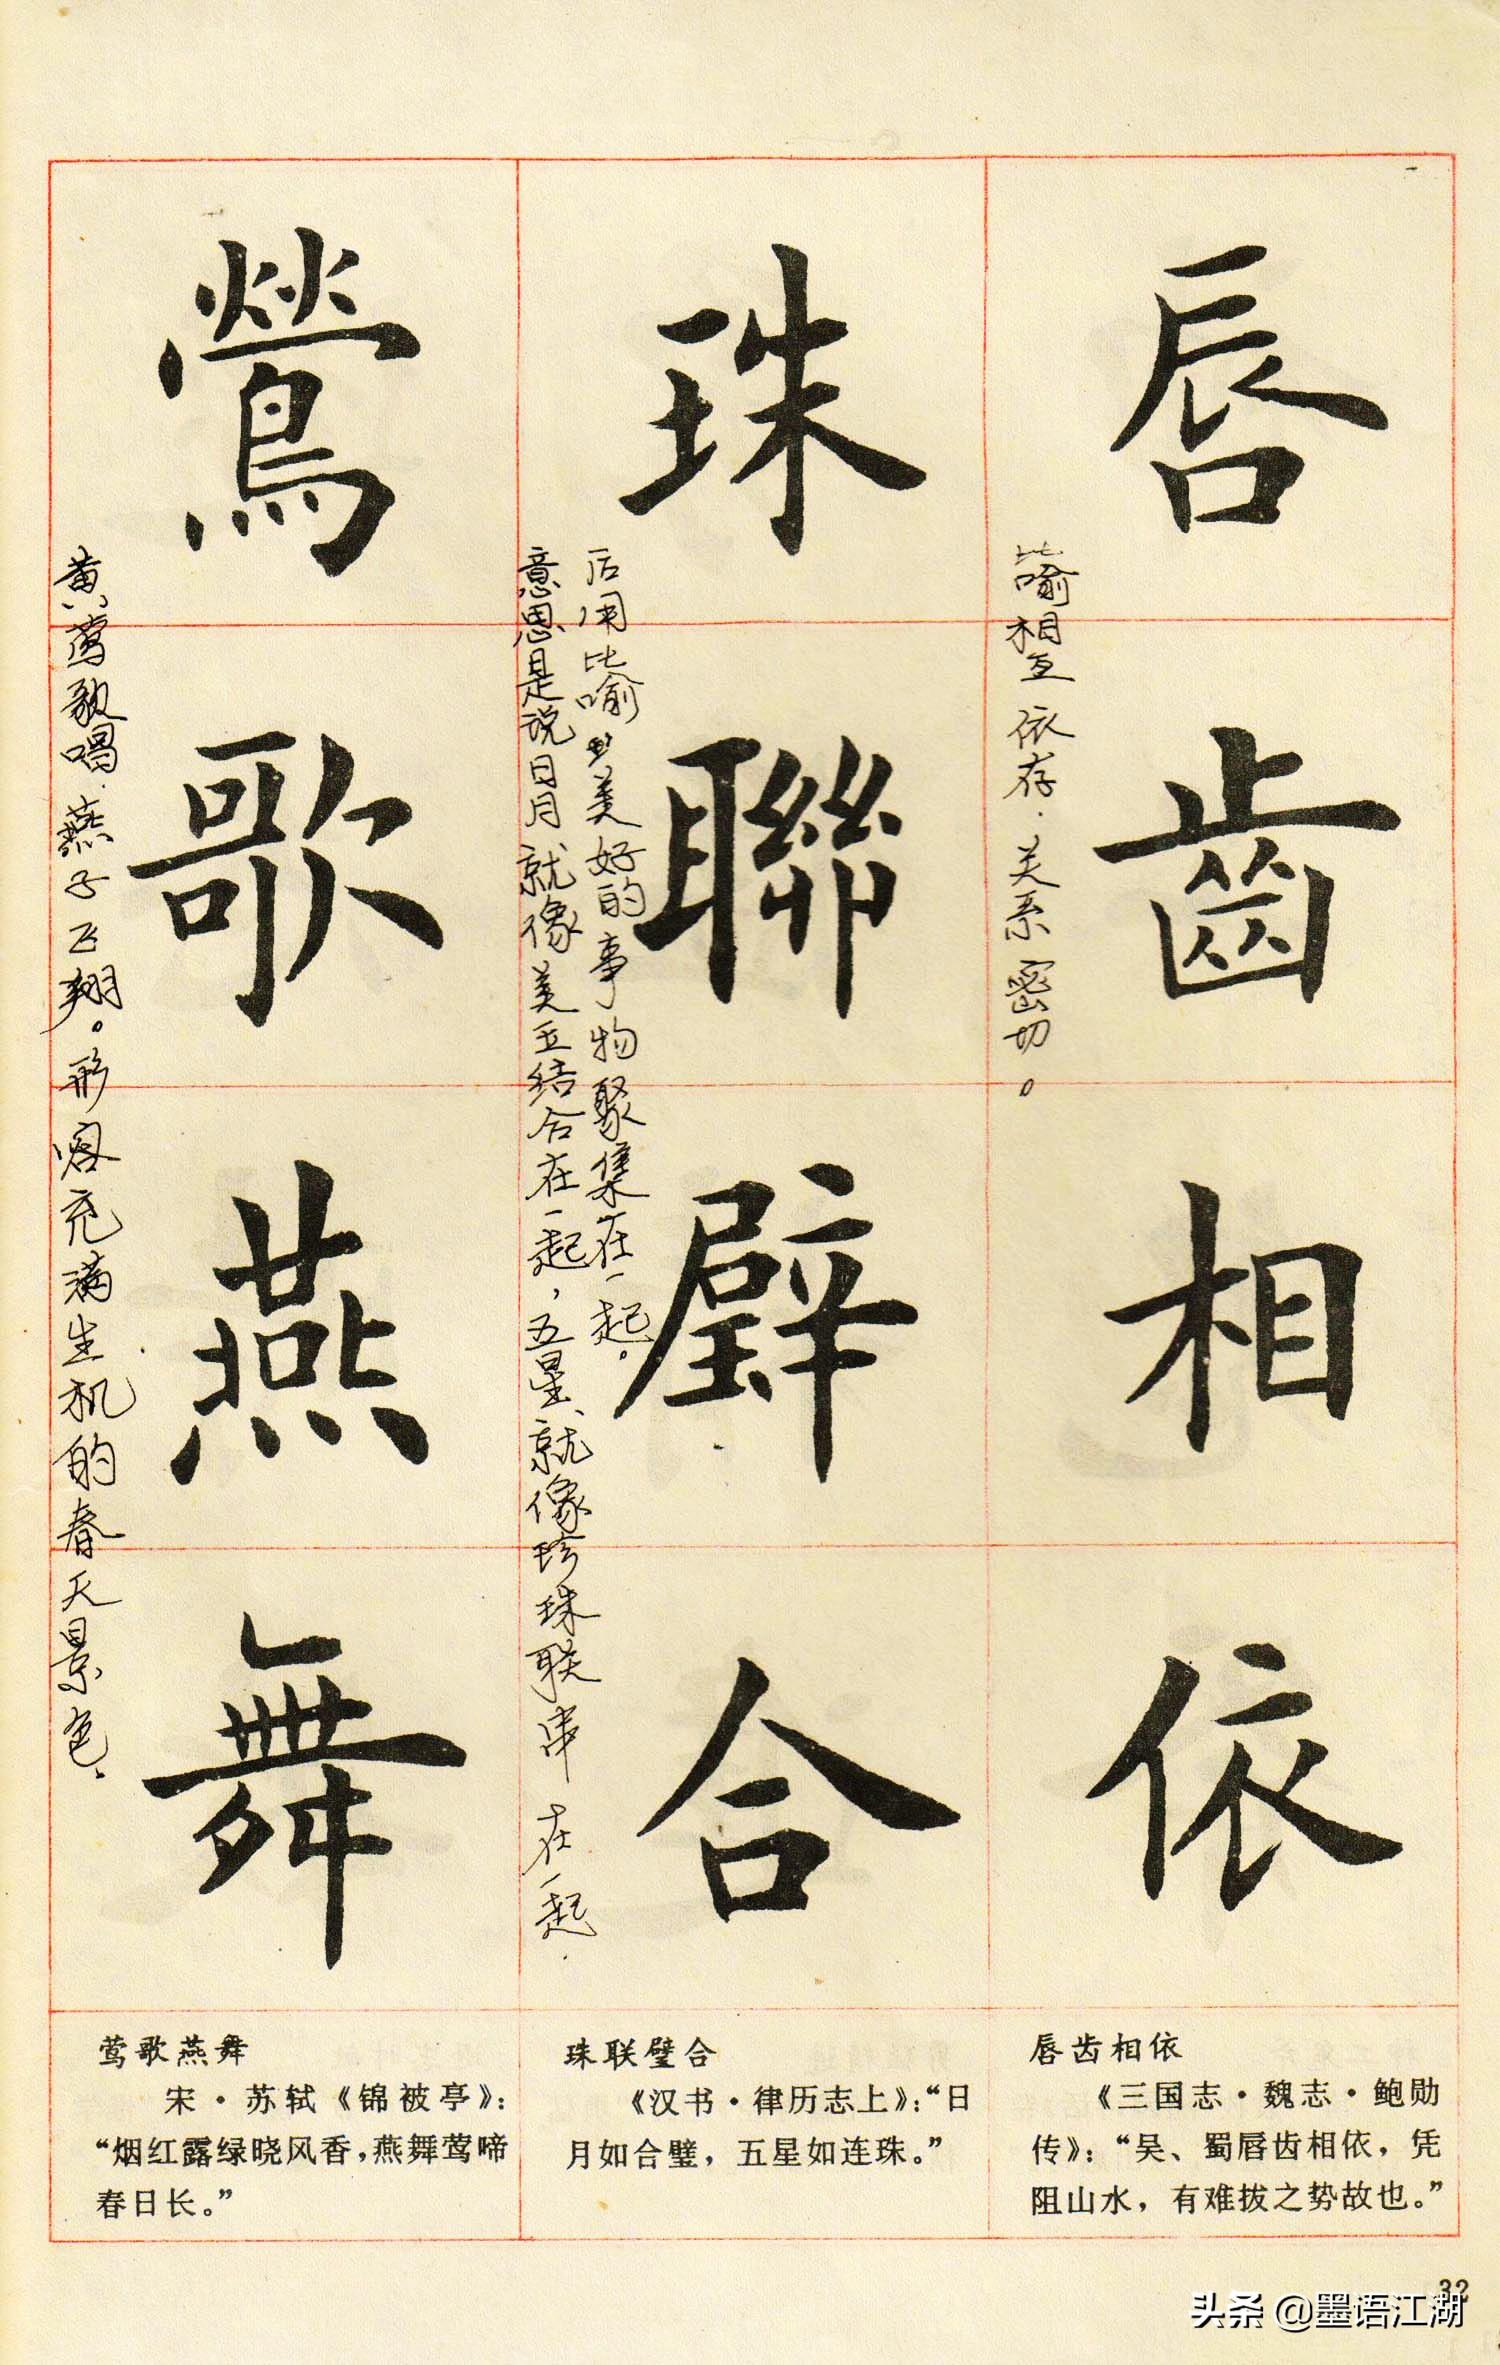 唇齒相依
比喻相互依存.关系密切。
珠聯璧合
后用比喻美好的事物聚集在一起。
意思是说日月就像美玉结合在一起，五星就像珍珠联串在一起.
鶯歌燕舞
黄莺歌唱.燕子飞翔。形容充满生机的春天景色.
唇齿相依
《三国志·魏志·鲍勋
传》：“吴、蜀唇齿相依，凭
阻山水，有难拔之势故也。”
珠联璧合
《汉书·律历志上》：“日
月如合璧，五星如连珠。”
莺歌燕舞
宋·苏轼《锦被亭》：
“烟红露绿晓风香，燕舞莺啼
春日长。”
32
头条 @墨语江湖